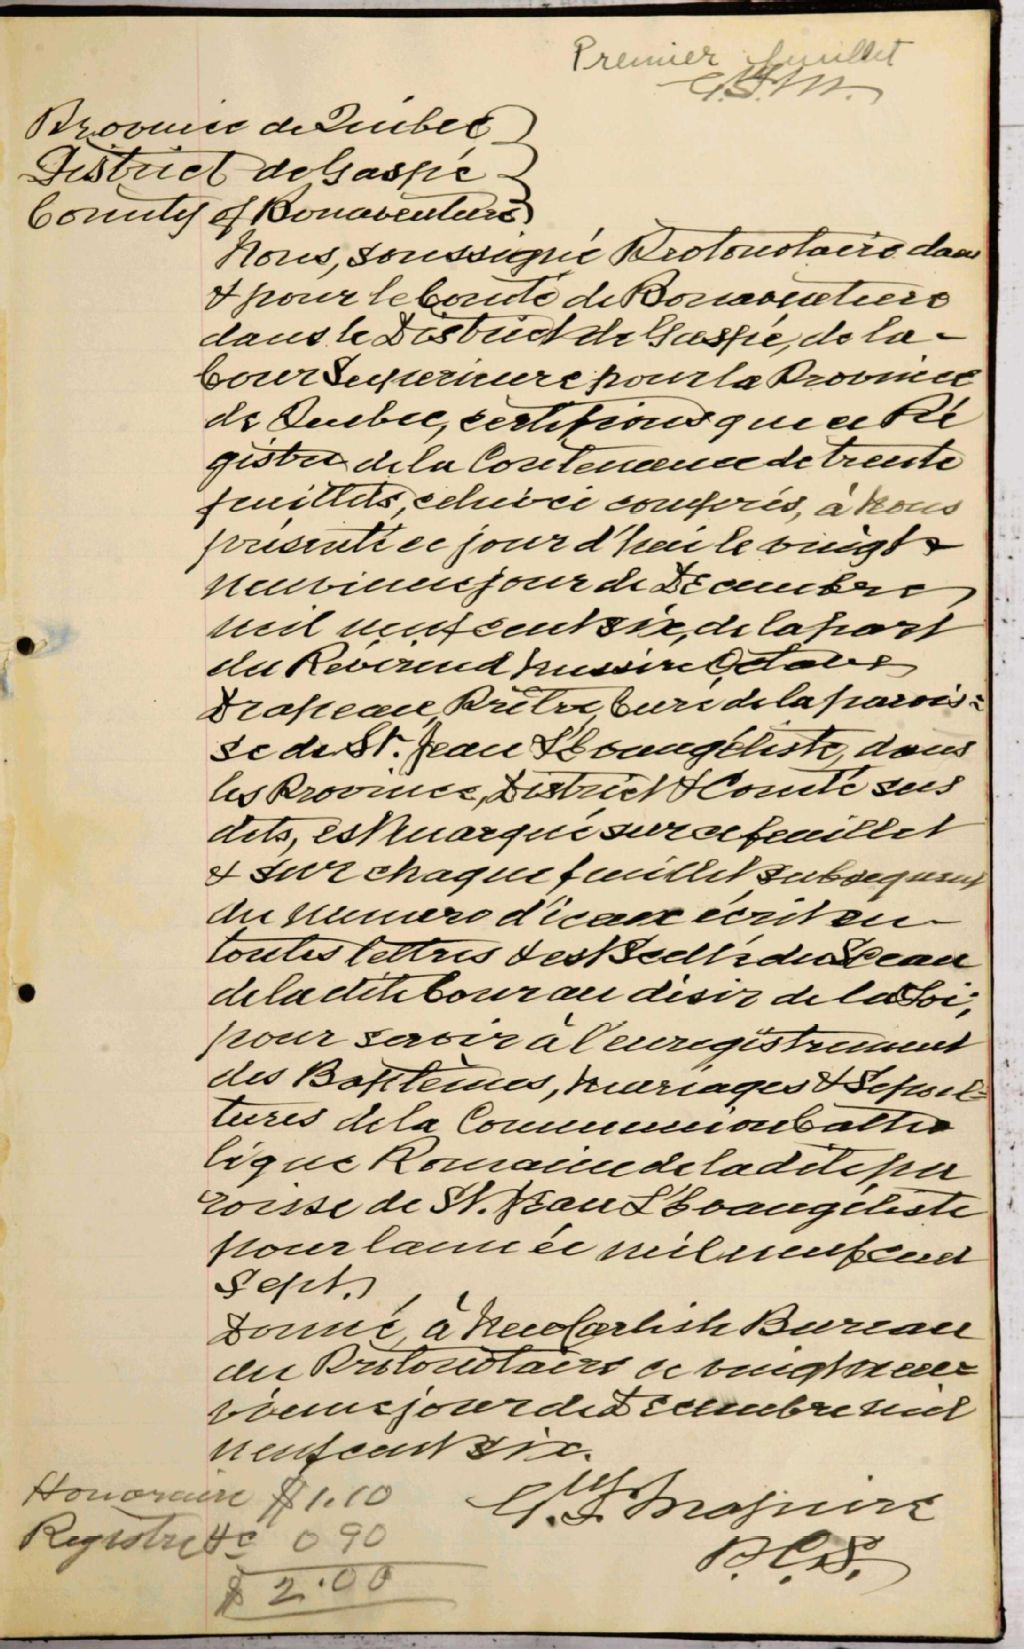 Premier feuillet
Province de Québec
District de Gaspé
County of Bonaventure
Nous, soussigné Protonotaire dans
& pour le Comté de Bonaventure
dans le District de Gaspé, de la
Cour Superieure pour la Province
de Quebec, certifions que ce Ré
gistre de la Contenance de trente
feuillets, celui-ci compris, à Nous
présenté ce jour d'hui le vingt &
neuvieme jour de Décembre
mil neuf cent six, de la part
du Révérend Messire Octave
Drapeau, Prêtre, Curé de la parois=
se de St. Jean L'Evangéliste, dans
les Province, District & Comté sus
dits, est marqué sur ce feuillet
& sur chaque feuillet subsequent
du numero d'iceux écrit en
toutes lettres & est Scellé du Sceau
de la dite Cour au désir de la Loi;
pour servir à l'enregistrement
des Baptêmes, Mariages & Sepul=
tures de la Communion Catho
lique Romaine de la dite pa
roisse de St. Jean L'Evangéliste
pour l'année mil neuf cent
Sept.
Donné, à New Carlisle Bureau
du Protonotaire ce vingt neu=
vieme jour de Décembre mil
neuf cent six.
Honoraire $1.10
Registre &c 0 90
$ 2.00
P.C.S.